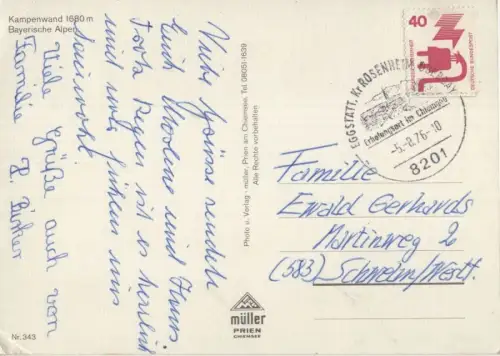 Kampenwand 1680 m
Bayerische Alpen
Viele Grüsse sendet
Euch und Hans
Trotz Regen ist es herrlich
und wir uns
Viele Grüße auch von
Familie P.
Nr. 343
Photo u. Verlag - müller, Prien am Chiemsee, Tel. 08051-1639
Alle Rechte vorbehalten
müller
PRIEN
CHIEMSEE
40
DEUTSCHE BUNDESPOST
EGGSTÄTT, Kr ROSENHEIM
Erholungsort im Chiemgau
76-10
8201
Familie
Ewald Gerhards
Martinweg 2
(583) Schwelm/Westf.